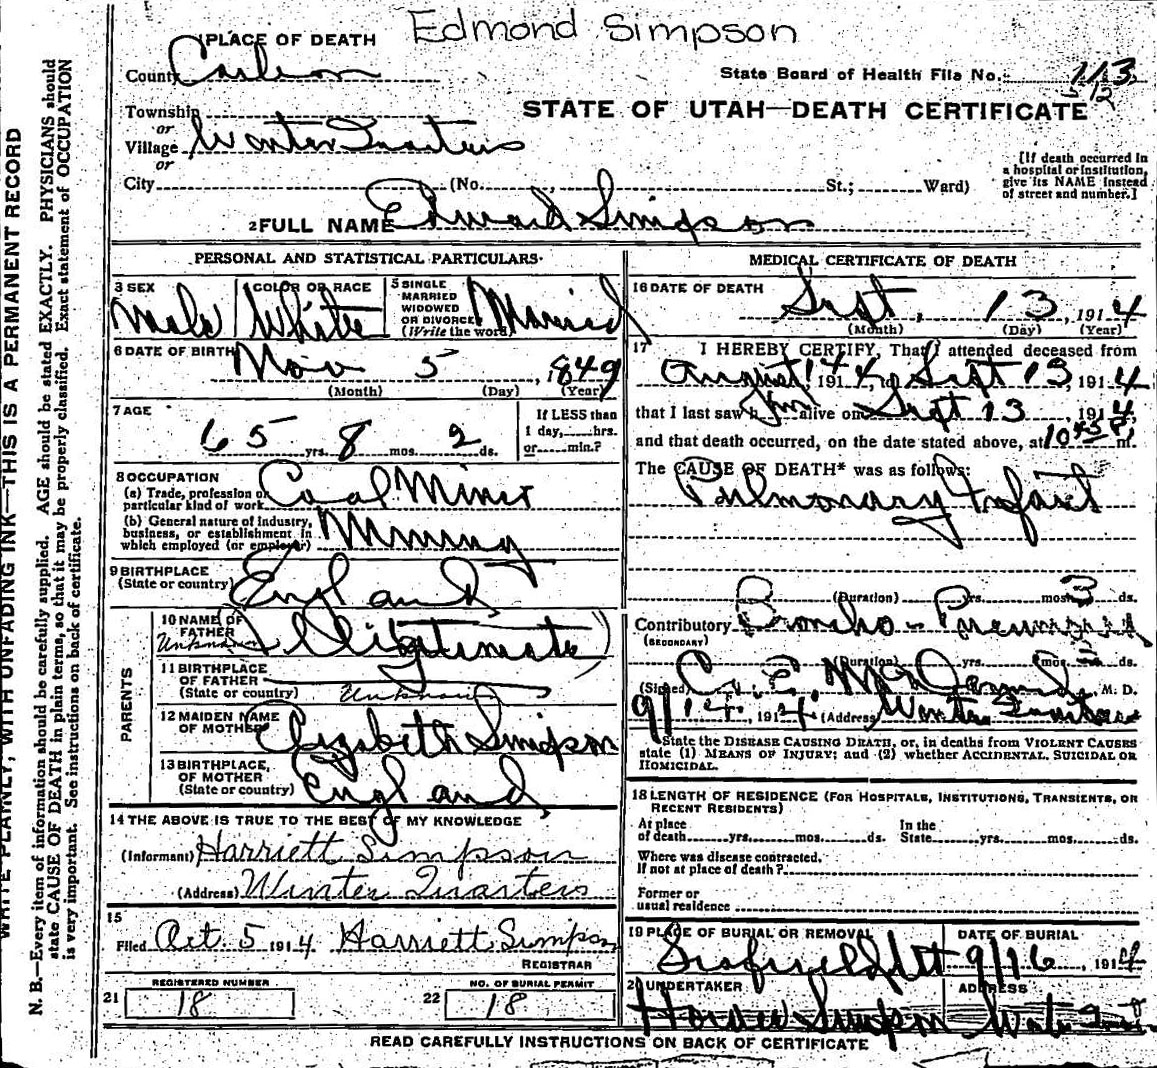 Edmond Simpson
1 PLACE OF DEATH
County Carbon
State Board of Health File No. 113
12
STATE OF UTAH—DEATH CERTIFICATE
Township
or
Village Winter Quarters
or
City (No. , St.; Ward)
[If death occurred in a hospital or institution, give its NAME instead of street and number.]
2 FULL NAME Edward Simpson
PERSONAL AND STATISTICAL PARTICULARS
3 SEX Male
COLOR OR RACE White
5 SINGLE MARRIED WIDOWED OR DIVORCED (Write the word) Married
6 DATE OF BIRTH 5, 1849
(Month) (Day) (Year)
7 AGE
65 yrs. 8 mos. 2 ds.
If LESS than 1 day, hrs. or min.?
8 OCCUPATION
(a) Trade, profession or particular kind of work Coal Miner
(b) General nature of industry, business, or establishment in which employed (or employer) Mining
9 BIRTHPLACE
(State or country) England
PARENTS
10 NAME OF FATHER Unknown (Illigtimate)
11 BIRTHPLACE OF FATHER
(State or country) Unknown
12 MAIDEN NAME OF MOTHER Elizabeth Simpson
13 BIRTHPLACE, OF MOTHER
(State or country) England
14 THE ABOVE IS TRUE TO THE BEST OF MY KNOWLEDGE
(Informant) Harriett Simpson
(Address) Winter Quarters
15
Filed Oct. 5 1914 Harriett Simpson
REGISTRAR
21 REGISTERED NUMBER 18
22 NO. OF BURIAL PERMIT 18
MEDICAL CERTIFICATE OF DEATH
16 DATE OF DEATH
Sept, 13, 1914
(Month) (Day) (Year)
17 I HEREBY CERTIFY, That I attended deceased from
August 1914, to Sept 13, 1914
that I last saw him alive on Sept 13, 1914,
and that death occurred, on the date stated above, at 10 45 P. m.
The CAUSE OF DEATH* was as follows:
Pulmonary Infarct
(Duration) yrs. mos. 3 ds.
Contributory Broncho-Pneumonia
(SECONDARY)
(Duration) yrs. mos. ds.
(Signed) M. D.
9/14, 1914 (Address) Winter Quarters
*State the DISEASE CAUSING DEATH, or, in deaths from VIOLENT CAUSES
state (1) MEANS OF INJURY; and (2) whether ACCIDENTAL, SUICIDAL OR
HOMICIDAL.
18 LENGTH OF RESIDENCE (FOR HOSPITALS, INSTITUTIONS, TRANSIENTS, OR
RECENT RESIDENTS)
At place of death yrs. mos. ds. In the State yrs. mos. ds.
Where was disease contracted,
if not at place of death?
Former or
usual residence
19 PLACE OF BURIAL OR REMOVAL
DATE OF BURIAL
9/16, 1914
20 UNDERTAKER
ADDRESS
Simpson Winter
READ CAREFULLY INSTRUCTIONS ON BACK OF CERTIFICATE
WRITE PLAINLY, WITH UNFADING INK—THIS IS A PERMANENT RECORD
N. B.—Every item of information should be carefully supplied. AGE should be stated EXACTLY. PHYSICIANS should
state CAUSE OF DEATH in plain terms, so that it may be properly classified. Exact statement of OCCUPATION
is very important. See instructions on back of certificate.